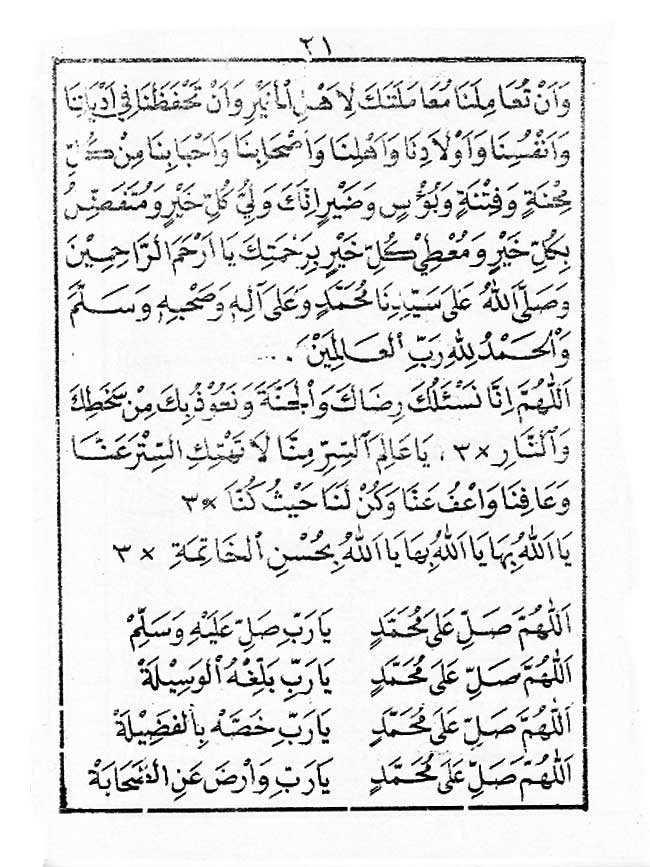 ٢١
وَاَنْ تُعَامِلَنَا مُعَامَلَتَكَ لِاَهْلِ الْخَيْرِ وَاَنْ تَحْفَظَنَا فِيْ اَدْيَانِنَا
وَاَنْفُسِنَا وَاَوْلَادِنَا وَاَهْلِنَا وَاَصْحَابِنَا وَاَحْبَابِنَا مِنْ كُلِّ
مِحْنَةٍ وَفِتْنَةٍ وَبُؤْسٍ وَضَيْرٍ اِنَّكَ وَلِيُّ كُلِّ خَيْرٍ وَمُتَفَضِّلٌ
بِكُلِّ خَيْرٍ وَمُعْطِيْ كُلِّ خَيْرٍ بِرَحْمَتِكَ يَا اَرْحَمَ الرَّاحِمِيْنَ
وَصَلَّى اللهُ عَلَى سَيِّدِنَا مُحَمَّدٍ وَعَلَى آلِهِ وَصَحْبِهِ وَسَلَّمَ
وَالْحَمْدُ لِلّٰهِ رَبِّ الْعَالَمِيْنَ . ...
اَللّٰهُمَّ اِنَّا نَسْئَلُكَ رِضَاكَ وَالْجَنَّةَ وَنَعُوْذُ بِكَ مِنْ سَخَطِكَ
وَالنَّارِ ×٣ . يَا عَالِمَ السِّرِّ مِنَّا لَا تَهْتِكِ السِّتْرَ عَنَّا
وَعَافِنَا وَاعْفُ عَنَّا وَكُنْ لَنَا حَيْثُ كُنَّا ×٣
يَا اَللهُ بِهَا يَا اَللهُ بِهَا يَا اَللهُ بِحُسْنِ الْخَاتِمَةِ × ٣
اَللّٰهُمَّ صَلِّ عَلَى مُحَمَّدٍ يَارَبِّ صَلِّ عَلَيْهِ وَسَلِّمْ
اَللّٰهُمَّ صَلِّ عَلَى مُحَمَّدٍ يَارَبِّ بَلِّغْهُ الْوَسِيْلَةْ
اَللّٰهُمَّ صَلِّ عَلَى مُحَمَّدٍ يَارَبِّ خُصَّهُ بِالْفَضِيْلَةْ
اَللّٰهُمَّ صَلِّ عَلَى مُحَمَّدٍ يَارَبِّ وَارْضَ عَنِ الصَّحَابَةْ